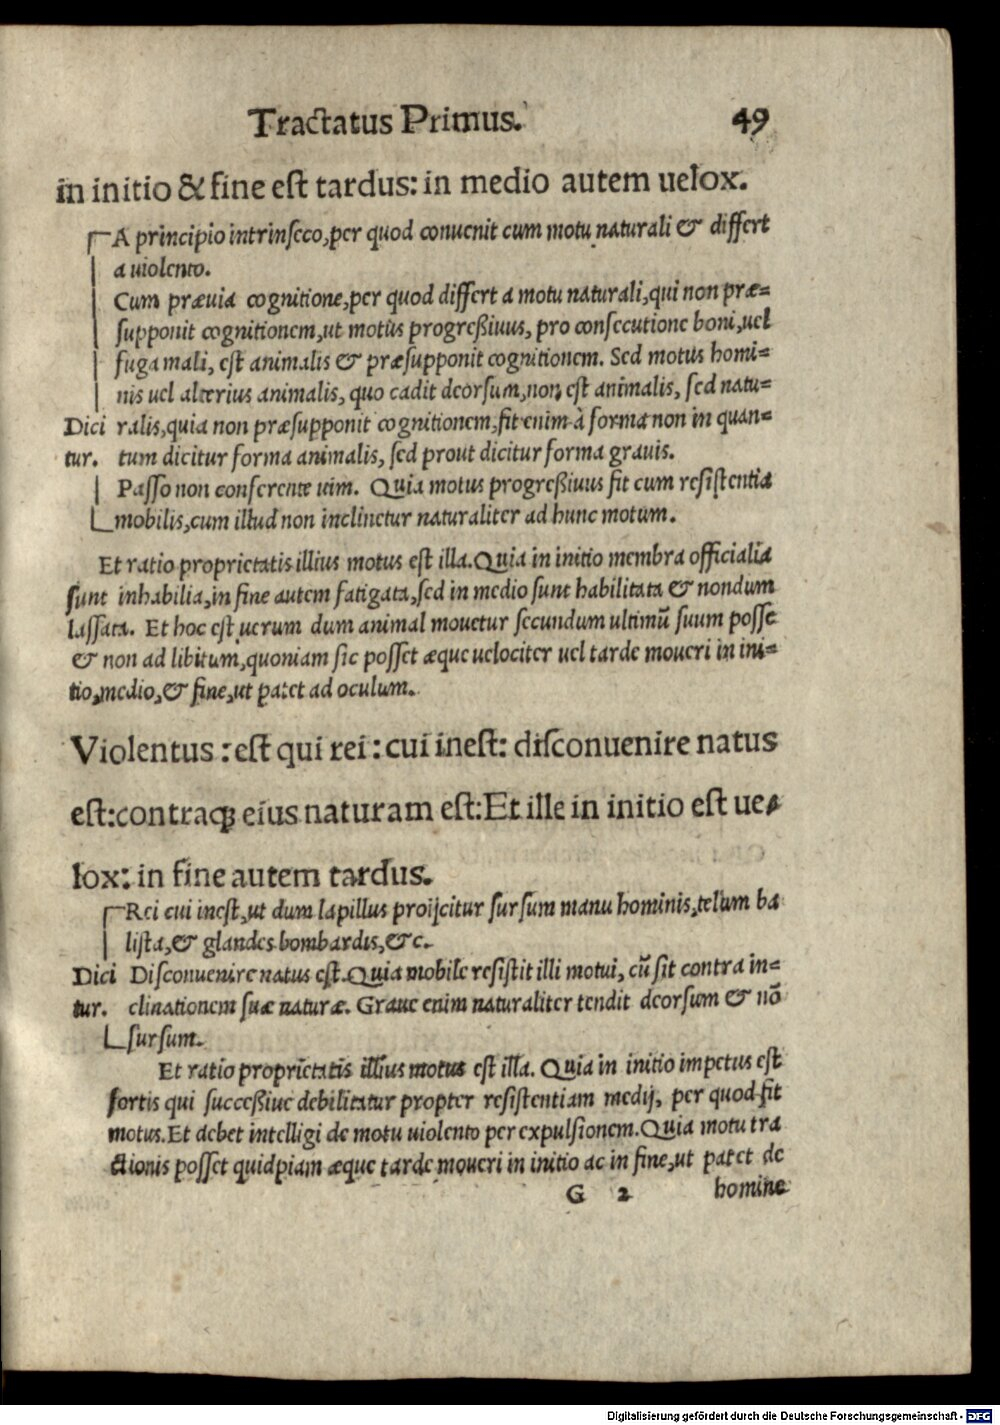 Tractatus Primus. 49
in initio & fine est tardus: in medio autem uelox.
A principio intrinseco, per quod conuenit cum motu naturali & differt
a uiolento.
Cum præuia cognitione, per quod differt a motu naturali, qui non præ=
supponit cognitionem, ut motus progreßiuus, pro consecutione boni, uel
fuga mali, est animalis & præsupponit cognitionem. Sed motus homi=
nis uel alterius animalis, quo cadit deorsum, non est animalis, sed natu=
Dici ralis, quia non præsupponit cognitionem, fit enim à forma non in quan=
tur. tum dicitur forma animalis, sed prout dicitur forma grauis.
Passo non conferente uim. Quia motus progreßiuus fit cum resistentia
mobilis, cum illud non inclinetur naturaliter ad hunc motum.
Et ratio proprietatis illius motus est illa. Quia in initio membra officialia
sunt inhabilia, in fine autem fatigata, sed in medio sunt habilitata & nondum
lassata. Et hoc est uerum dum animal mouetur secundum ultimū suum posse
& non ad libitum, quoniam sic posset æque uelociter uel tarde moueri in ini=
tio, medio, & fine, ut patet ad oculum.
Violentus : est qui rei : cui inest: disconuenire natus
est: contraq; eius naturam est: Et ille in initio est ue=
lox: in fine autem tardus.
Rei cui inest, ut dum lapillus proijcitur sursum manu hominis, telum ba
lista, & glandes bombardis, &c.
Dici Disconuenire natus est. Quia mobile resistit illi motui, cū sit contra in=
tur. clinationem suæ naturæ. Graue enim naturaliter tendit deorsum & nō
sursum.
Et ratio proprietatis illius motus est illa. Quia in initio impetus est
fortis qui succeßiue debilitatur propter resistentiam medij, per quod fit
motus. Et debet intelligi de motu uiolento per expulsionem. Quia motu tra
ctionis posset quidpiam æque tarde moueri in initio ac in fine, ut patet de
G 2 homine
Digitalisierung gefördert durch die Deutsche Forschungsgemeinschaft - DFG